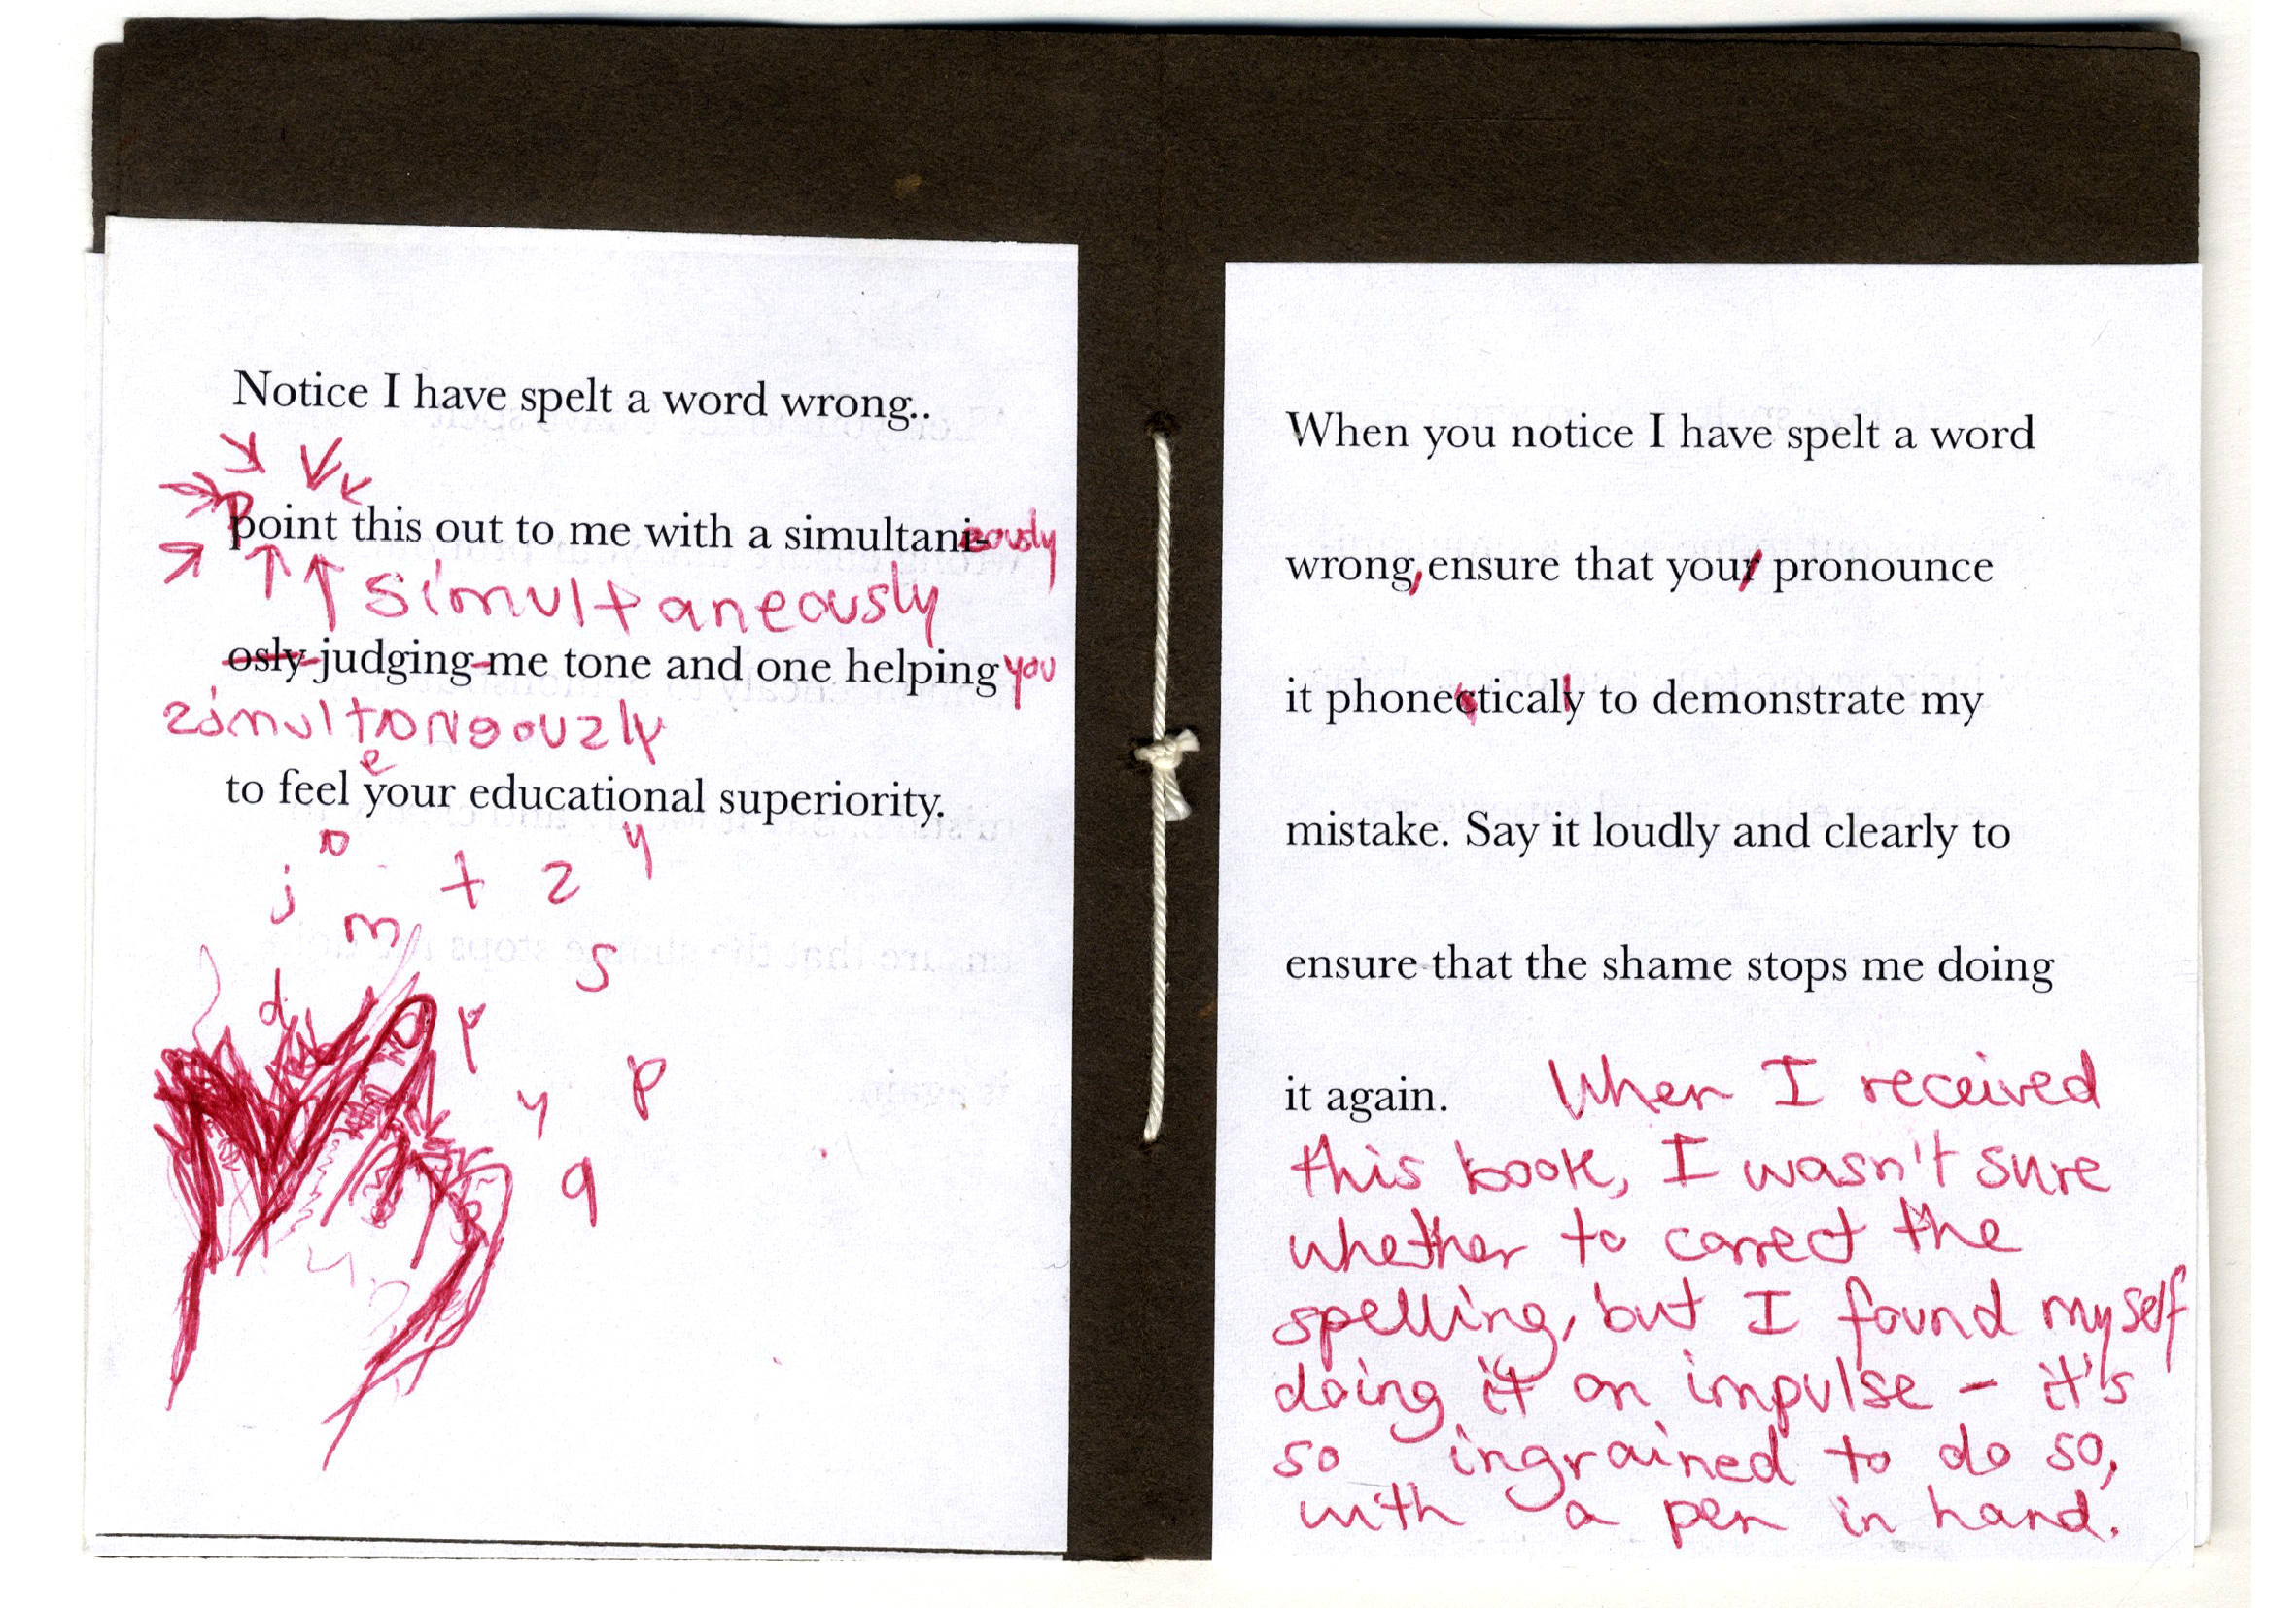 Notice I have spelt a word wrong..
point this out to me with a simultani-eously
simultaneously
osly-judging-me tone and one helping you
zimultaneouzly
e
to feel your educational superiority.
o y
j t z
m
s
d
p
y p
q
When you notice I have spelt a word
wrong, ensure that your pronounce
it phonectically to demonstrate my
mistake. Say it loudly and clearly to
ensure that the shame stops me doing
it again. When I received
this book, I wasn't sure
whether to correct the
spelling, but I found myself
doing it on impulse – it's
so ingrained to do so,
with a pen in hand.